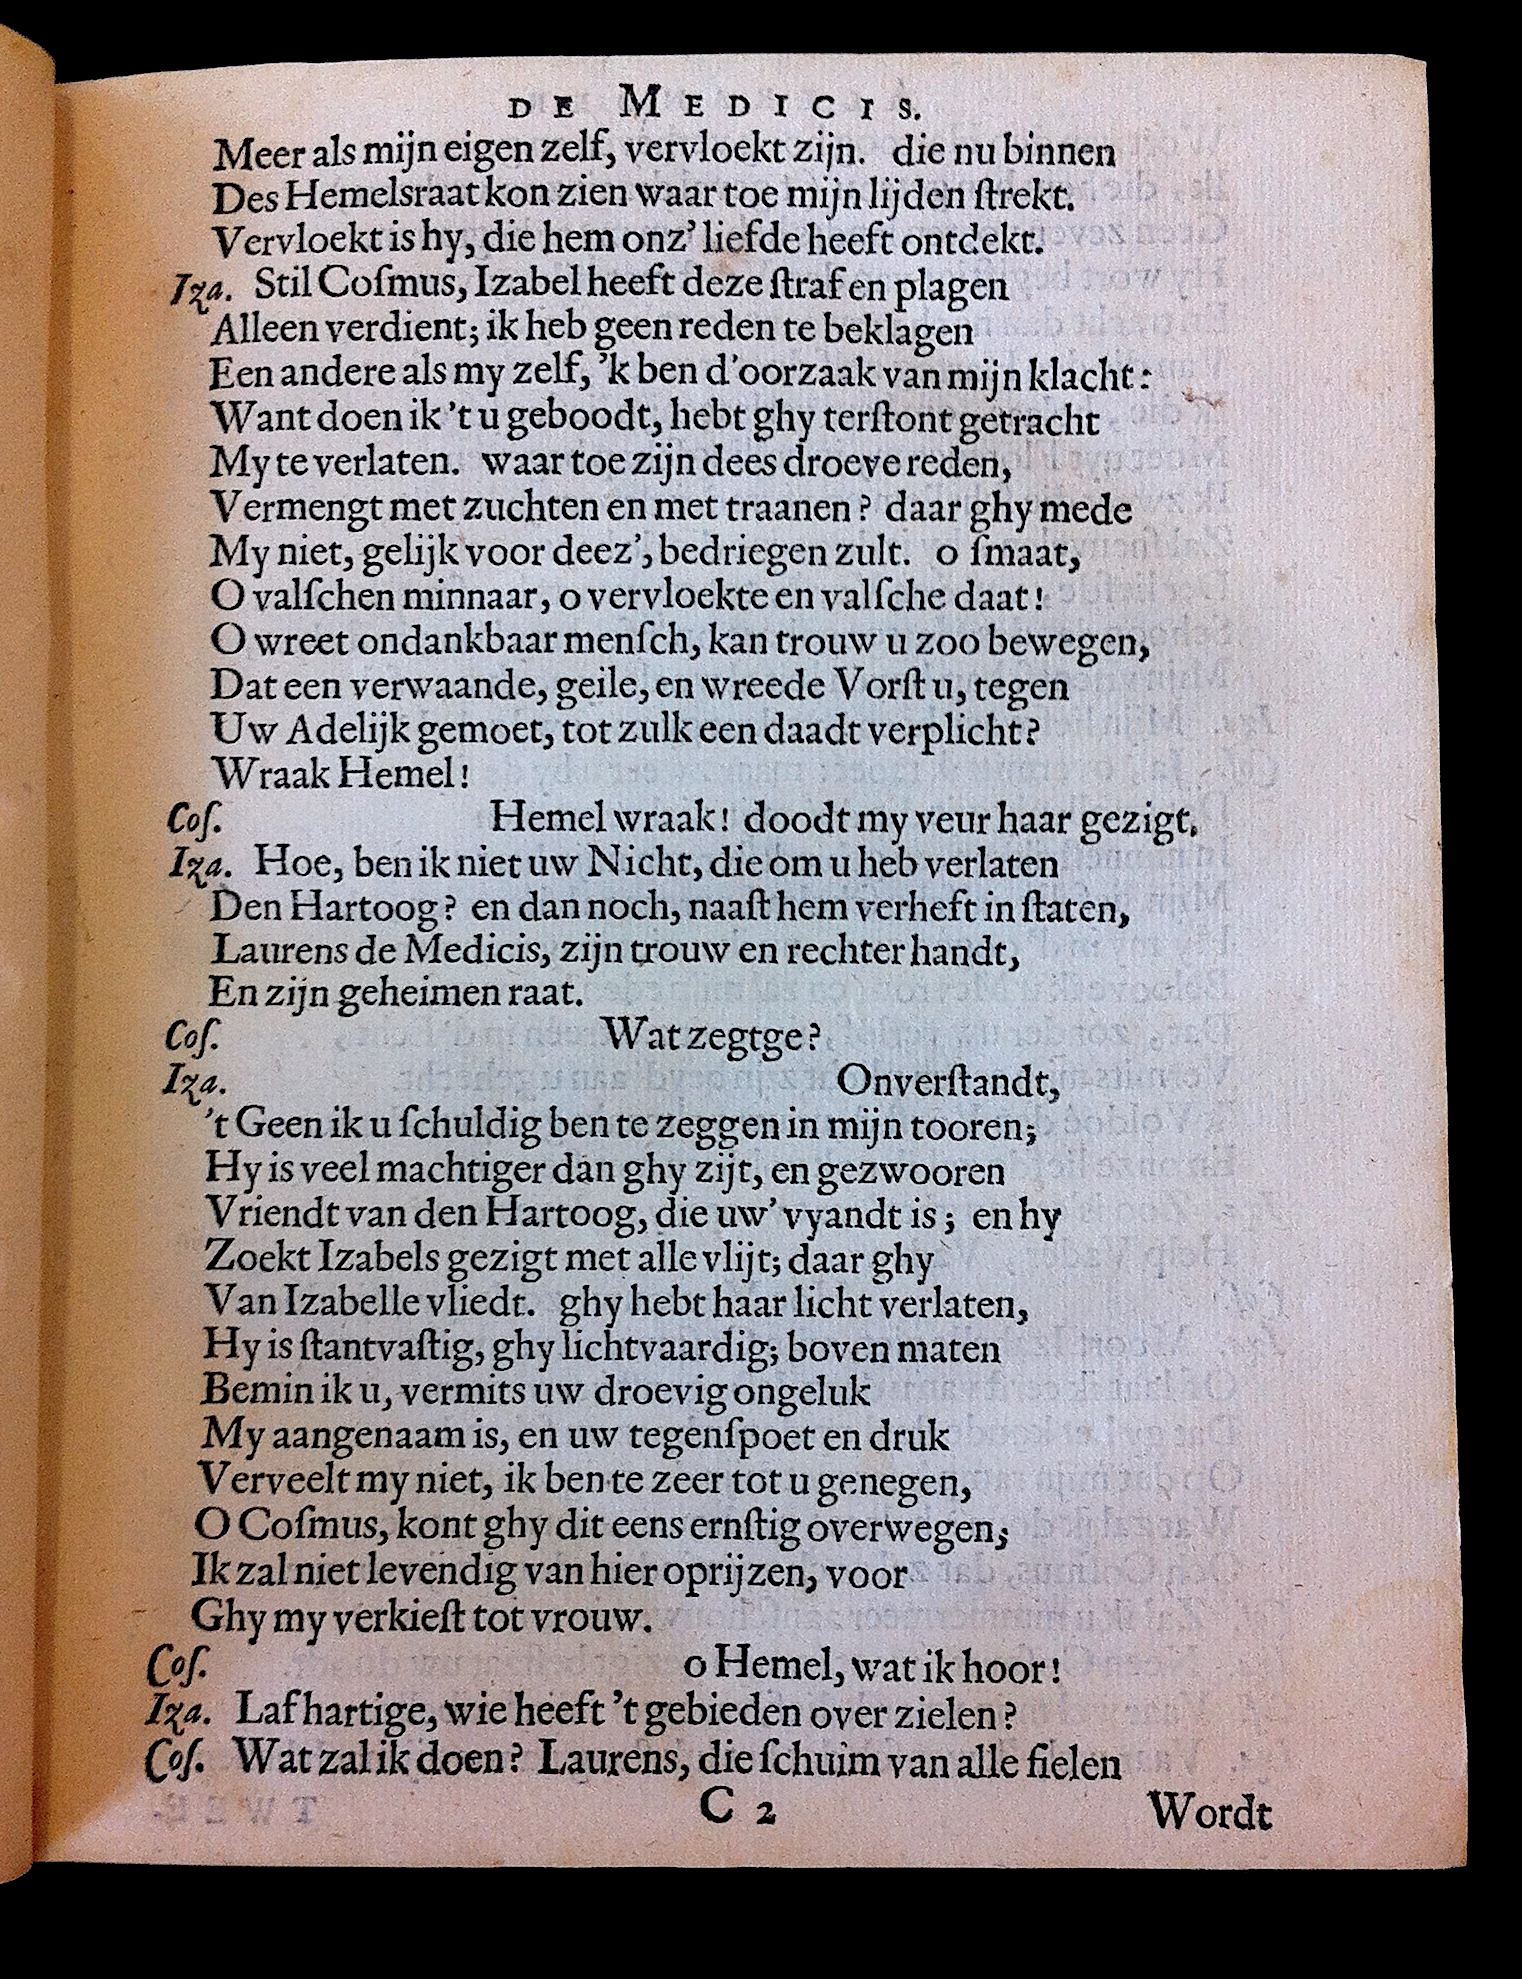 DE MEDICIS.
Meer als mijn eigen zelf, vervloekt zijn. die nu binnen
Des Hemelsraat kon zien waar toe mijn lijden ſtrekt.
Vervloekt is hy, die hem onz' liefde heeft ontdekt.
Iza. Stil Coſmus, Izabel heeft deze ſtraf en plagen
Alleen verdient; ik heb geen reden te beklagen
Een andere als my zelf, 'k ben d'oorzaak van mijn klacht:
Want doen ik 't u geboodt, hebt ghy terſtont getracht
My te verlaten. waar toe zijn dees droeve reden,
Vermengt met zuchten en met traanen? daar ghy mede
My niet, gelijk voor deez', bedriegen zult. o ſmaat,
O valſchen minnaar, o vervloekte en valſche daat!
O wreet ondankbaar menſch, kan trouw u zoo bewegen,
Dat een verwaande, geile, en wreede Vorſt u, tegen
Uw Adelijk gemoet, tot zulk een daadt verplicht?
Wraak Hemel!
Coſ. Hemel wraak! doodt my veur haar gezigt.
Iza. Hoe, ben ik niet uw Nicht, die om u heb verlaten
Den Hartoog? en dan noch, naaſt hem verheft in ſtaten,
Laurens de Medicis, zijn trouw en rechter handt,
En zijn geheimen raat.
Coſ. Wat zegtge?
Iza. Onverſtandt,
't Geen ik u ſchuldig ben te zeggen in mijn tooren;
Hy is veel machtiger dan ghy zijt, en gezwooren
Vriendt van den Hartoog, die uw' vyandt is; en hy
Zoekt Izabels gezigt met alle vlijt; daar ghy
Van Izabelle vliedt. ghy hebt haar licht verlaten,
Hy is ſtantvaſtig, ghy lichtvaardig; boven maten
Bemin ik u, vermits uw droevig ongeluk
My aangenaam is, en uw tegenſpoet en druk
Verveelt my niet, ik ben te zeer tot u genegen,
O Coſmus, kont ghy dit eens ernſtig overwegen;
Ik zal niet levendig van hier oprijzen, voor
Ghy my verkieſt tot vrouw.
Coſ. o Hemel, wat ik hoor!
Iza. Lafhartige, wie heeft 't gebieden over zielen?
Coſ. Wat zal ik doen? Laurens, die ſchuim van alle fielen
C 2 Wordt